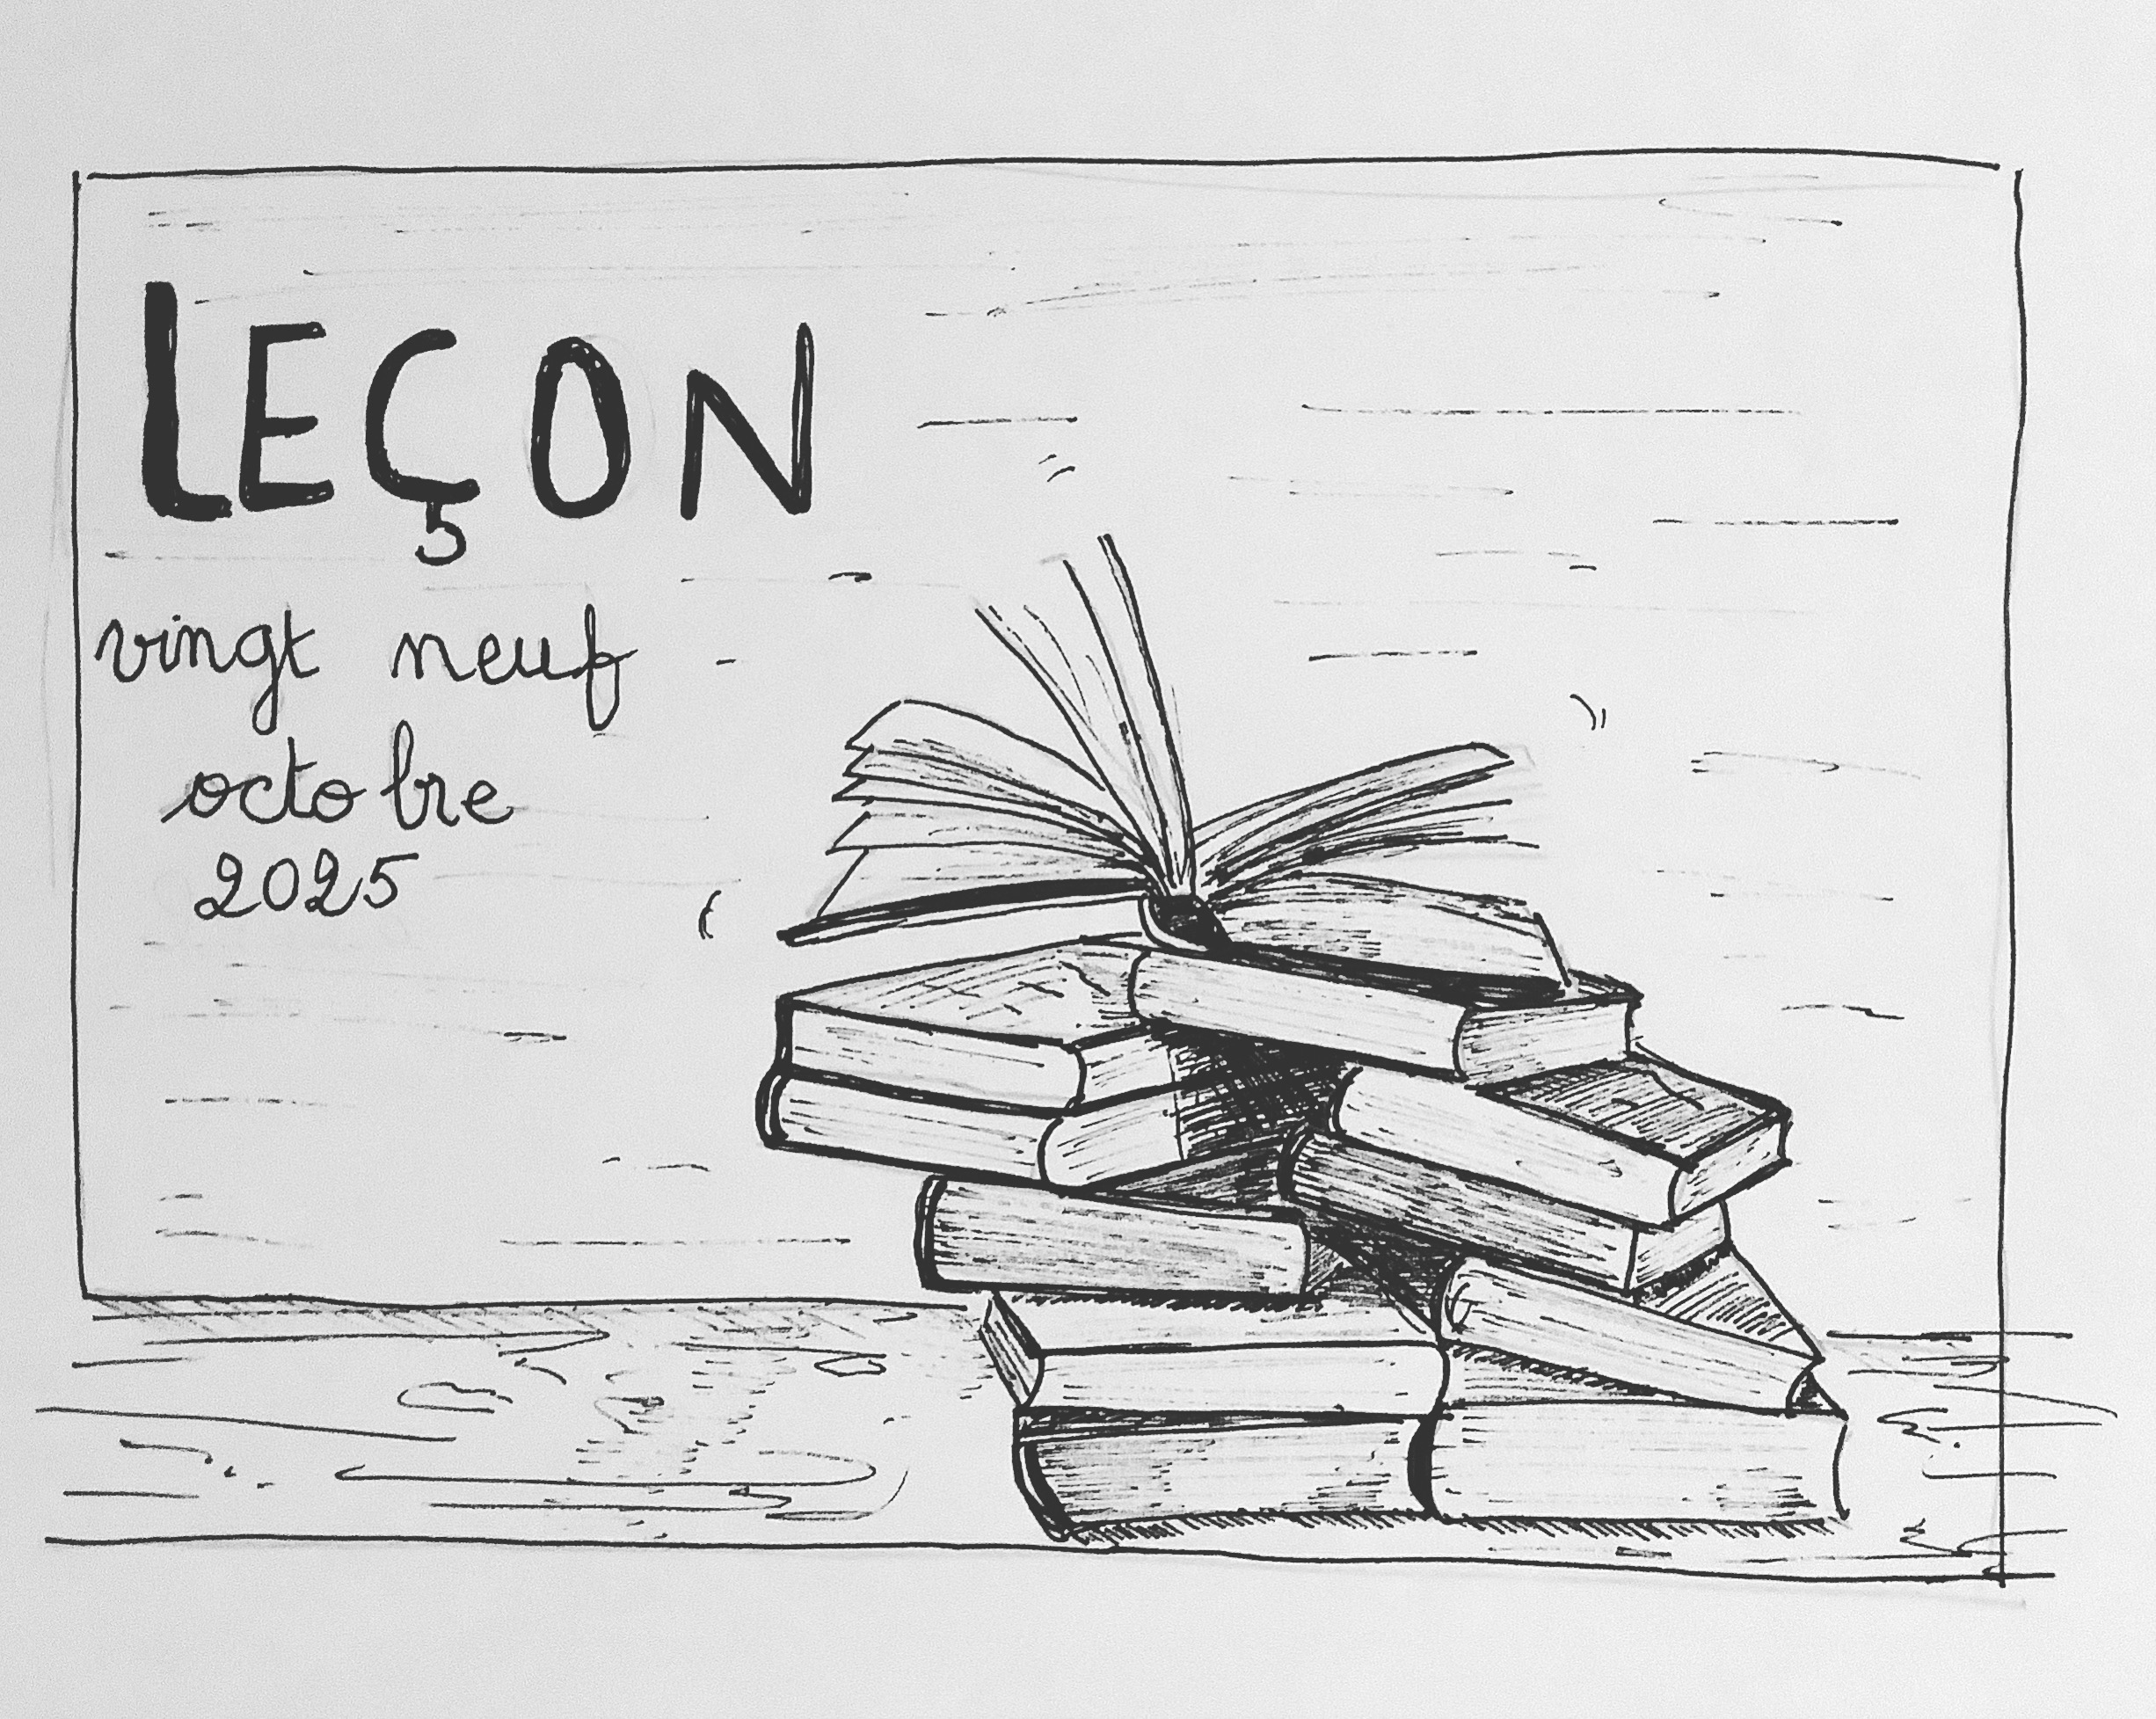 LEÇON
vingt neuf
octobre
2025